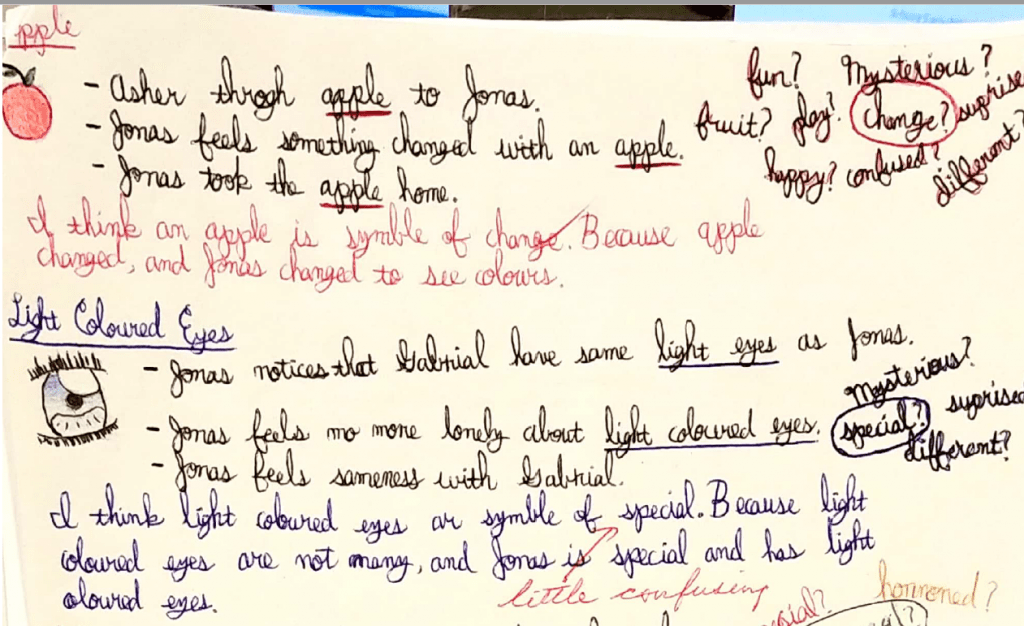 pple
- Asher throgh apple to Jonas.
- Jonas feels something changed with an apple.
- Jonas took the apple home.
fun? Mysterious?
fruit? play? change? suprise
happy? confused? different?
I think an apple is symble of change. Because apple
changed, and Jonas changed to see colours.
Light Coloured Eyes
- Jonas notices that Gabrial have same light eyes as Jonas.
- Jonas feels no more lonely about light coloured eyes.
- Jonas feels sameness with Gabrial.
Mysterious?
special? suprised
different?
I think light coloured eyes ar symble of special. Because light
coloured eyes are not many, and Jonas is special and has light
oloured eyes.
little confusing
honnoned?